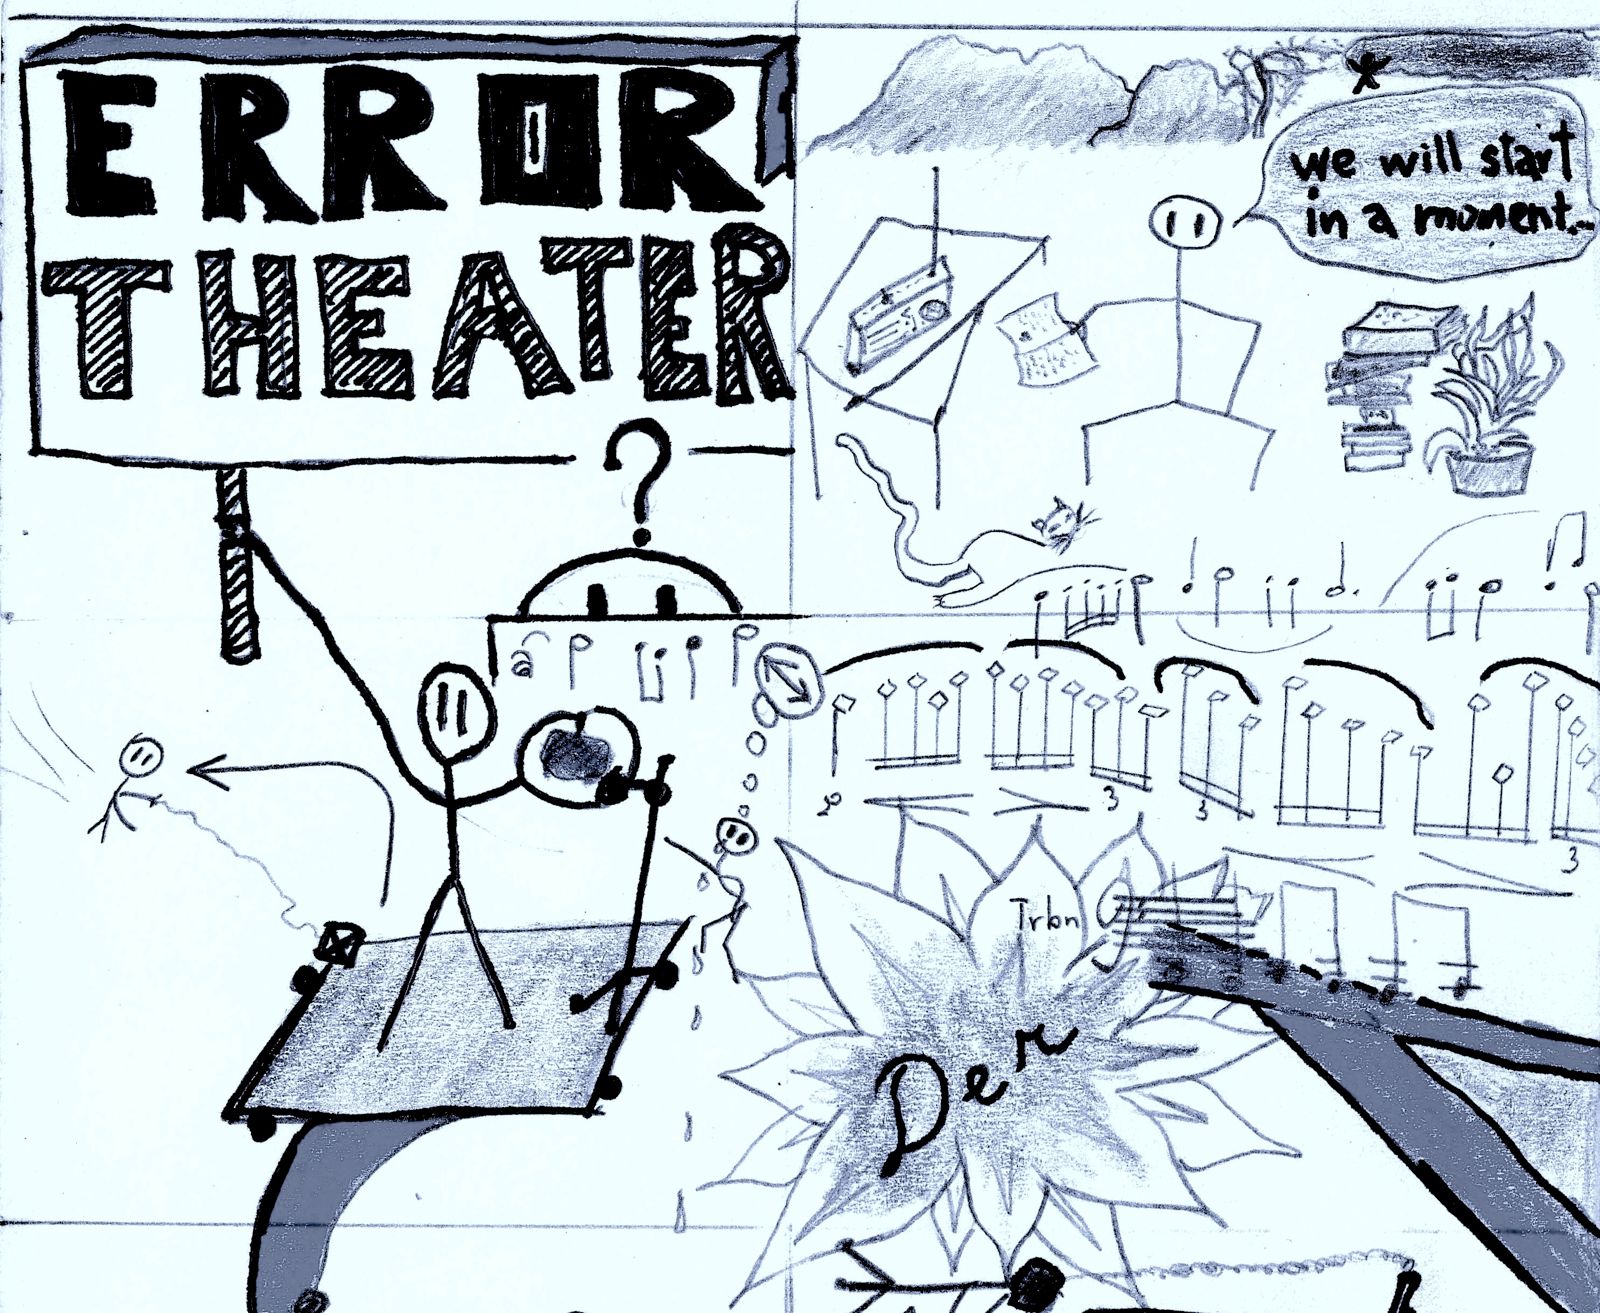 ERROR
THEATER
?
we will start
in a moment...
3
3
3
Trbn
Der